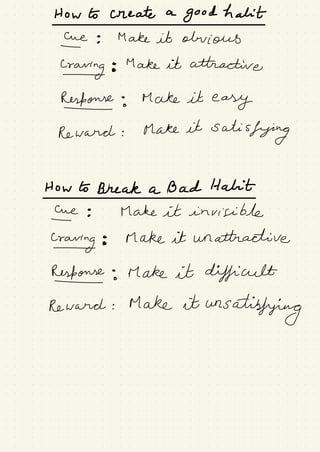 How to create a good habit
Cue : Make it obvious
Craving : Make it attractive
Response : Make it easy
Reward : Make it satisfying
How to Break a Bad Habit
Cue : Make it invisible
Craving : Make it unattractive
Response : Make it difficult
Reward : Make it unsatisfying